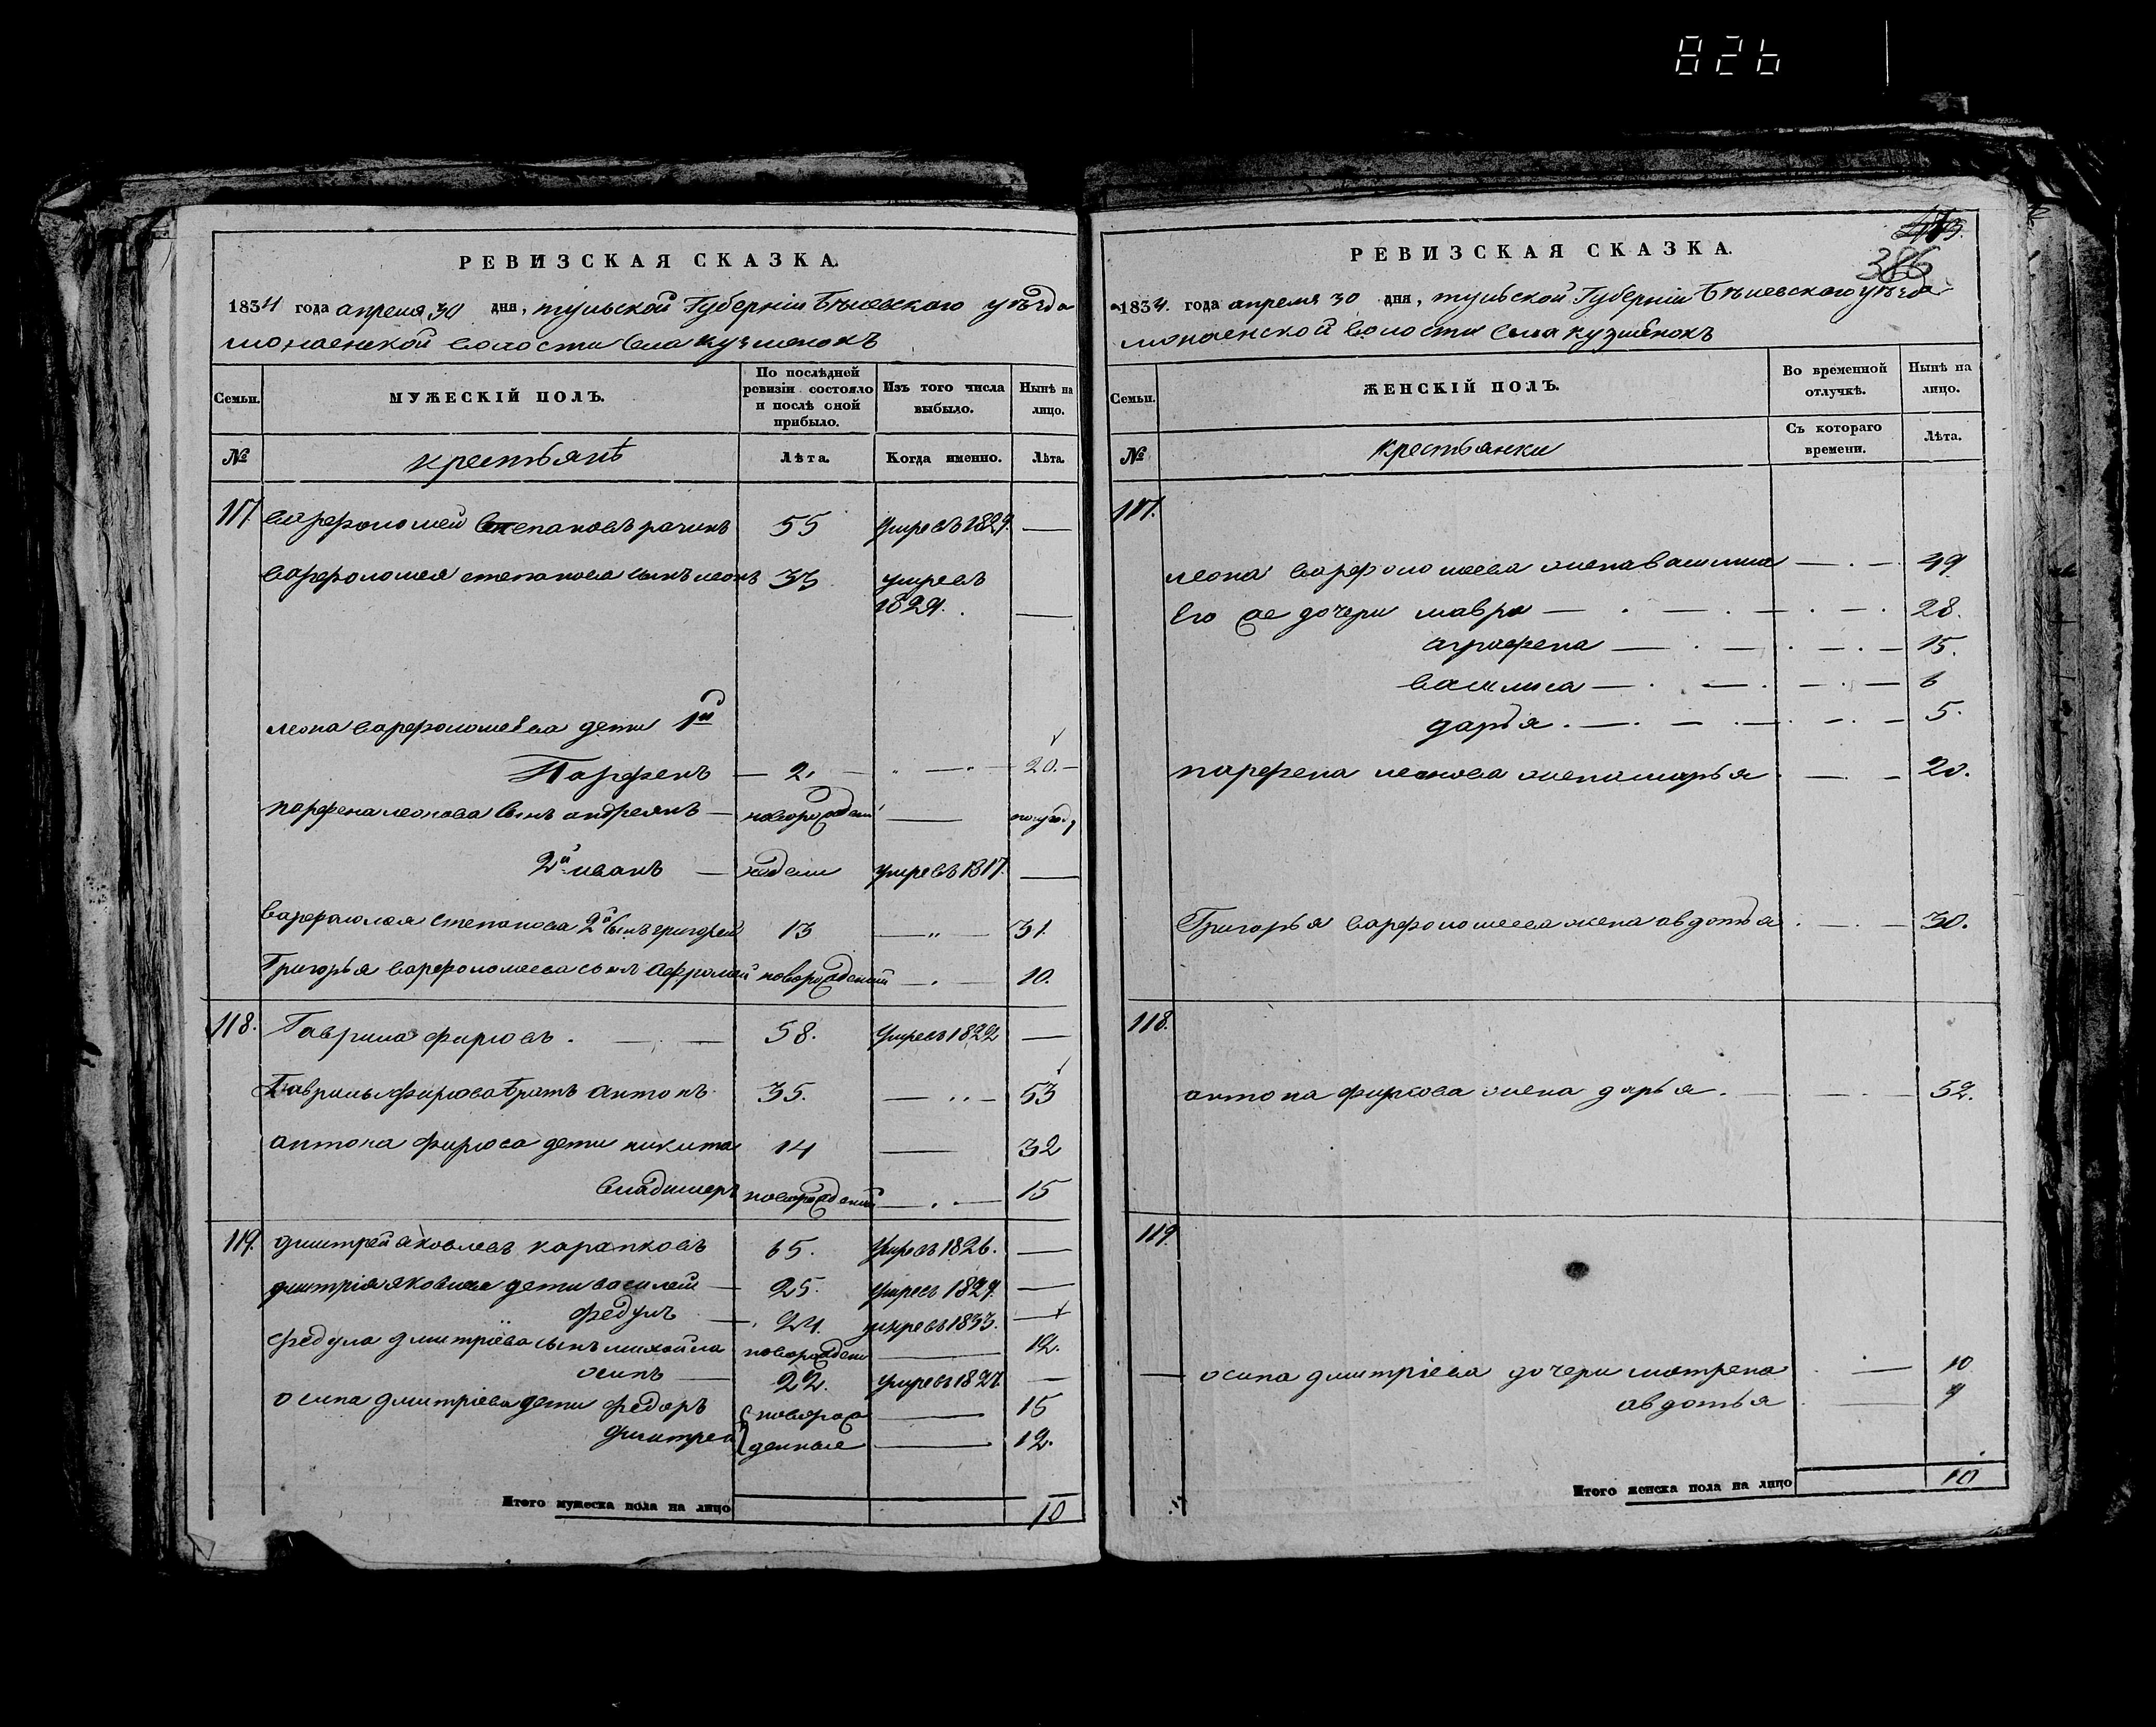 826
РЕВИЗСКАЯ СКАЗКА.
1834 года апреля 30 дня, тульской Губернiи Бѣлевскаго уѣзда
волости села кузменокъ
Семьи.
МУЖЕСКІЙ ПОЛЪ.
По послѣдней ревизіи состояло и послѣ оной прибыло.
Изъ того числа выбыло.
Нынѣ на лицо.
№
крестьянѣ
Лѣта.
Когда именно.
Лѣта.
117. варфоломей степановъ 55 умревъ —
варфоломея степанова сынъ леонъ 33 умревъ
—
леона варфоломеева дети 1й
Парфенъ — 2. — 20. —
парфена леонова сынъ андреянъ — новорожден — полугоду
2й иванъ — недели умревъ 1817. —
варфоломея степанова 2й сынъ григорей 13 — 31.
Григорья варфоломеева сынъ новорожденный — 10.
118. Гаврила фирсовъ. — 58. умревъ 1822 —
Гаврилы фирсова братъ антонъ 35. — 53
антона фирсова дети никита 14 — 32
владимеръ новорожденный — 15
119. дмитрей яковлевъ карапковъ 65. умревъ 1826. —
дмитрія яковлева дети василей — 25. умревъ —
федулъ — 24. умревъ 1833. —
федула дмитріева сынъ михайла новорожден — 12.
осипъ — 22. умревъ 1827. —
осипа дмитріева дети федоръ новорож — 15
дмитрей денные — 12.
Итого мужеска пола на лицо 10
386
РЕВИЗСКАЯ СКАЗКА.
1834. года апреля 30 дня, тульской Губернiи Бѣлевскаго уѣзда
волости села кузменокъ
Семьи.
ЖЕНСКІЙ ПОЛЪ.
Во временной отлучкѣ.
Нынѣ на лицо.
№
крестьянки
Съ котораго времени.
Лѣта.
117.
леона варфоломеева жена василиса — 49.
его же дочери мавра — 28.
аграфена — 15.
василиса — 6
дарья. — 5.
парфена леонова жена марья — 20.
Григорья варфоломеева жена авдотья — 30.
118.
антона фирсова жена дарья. — 52.
119.
— осипа дмитріева дочери матрена — 10
авдотья — 9
Итого женска пола на лицо 10